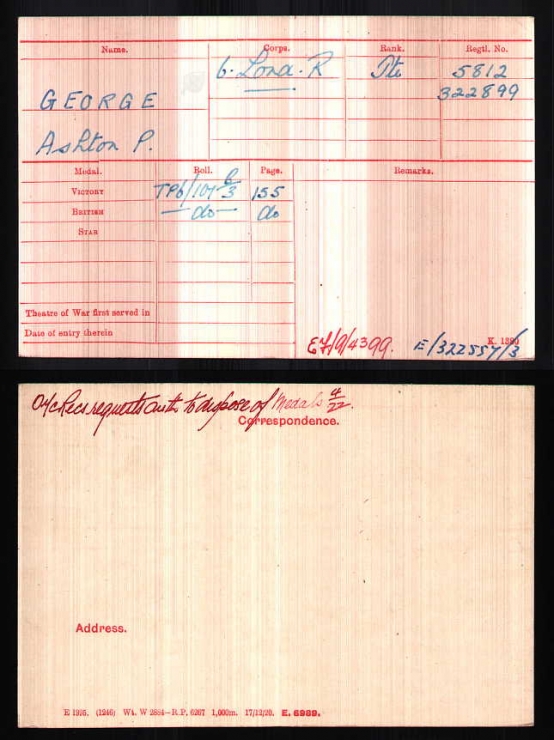 Name. Corps. Rank. Regtl. No.
6. Lond. R Pte 5812
322899
GEORGE
Ashton P.
Medal. Roll. Page. Remarks.
VICTORY TP6/101 B3 155
BRITISH —do— do
STAR
Theatre of War first served in
Date of entry therein
K. 1380
E4/9/4399. E/322557/3
O i/c Recs requests auth. to dispose of Medals 4/22.
Correspondence.
Address.
E 1995. (1246) Wt. W 2664—R.P. 6267 1,000m. 17/12/20. E. 6989.